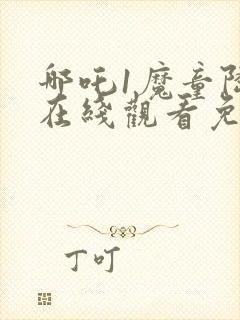 哪吒1魔童降
在綫觀看免
丁叮